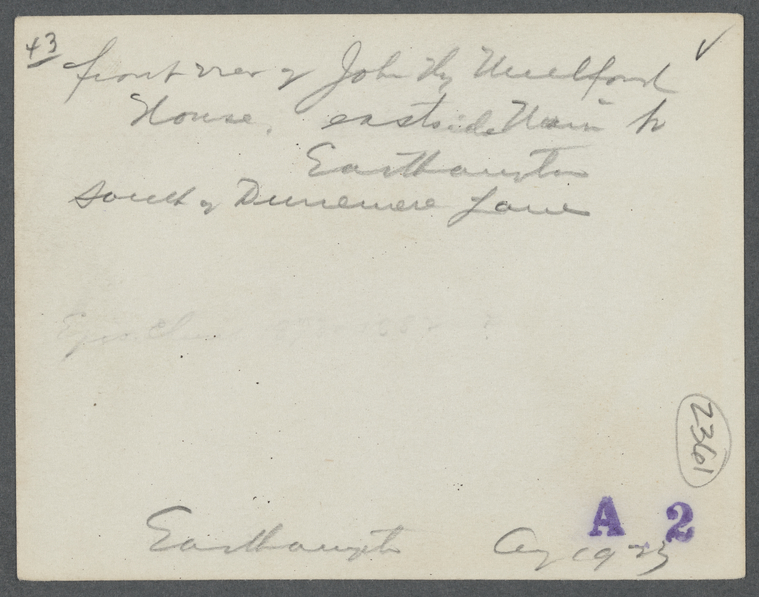 43 ✓
front view of John Hy Mulford
House, eastside Main St
Easthampton
south of Dunemere Lane
2361
A 2
Easthampton Aug 19-23